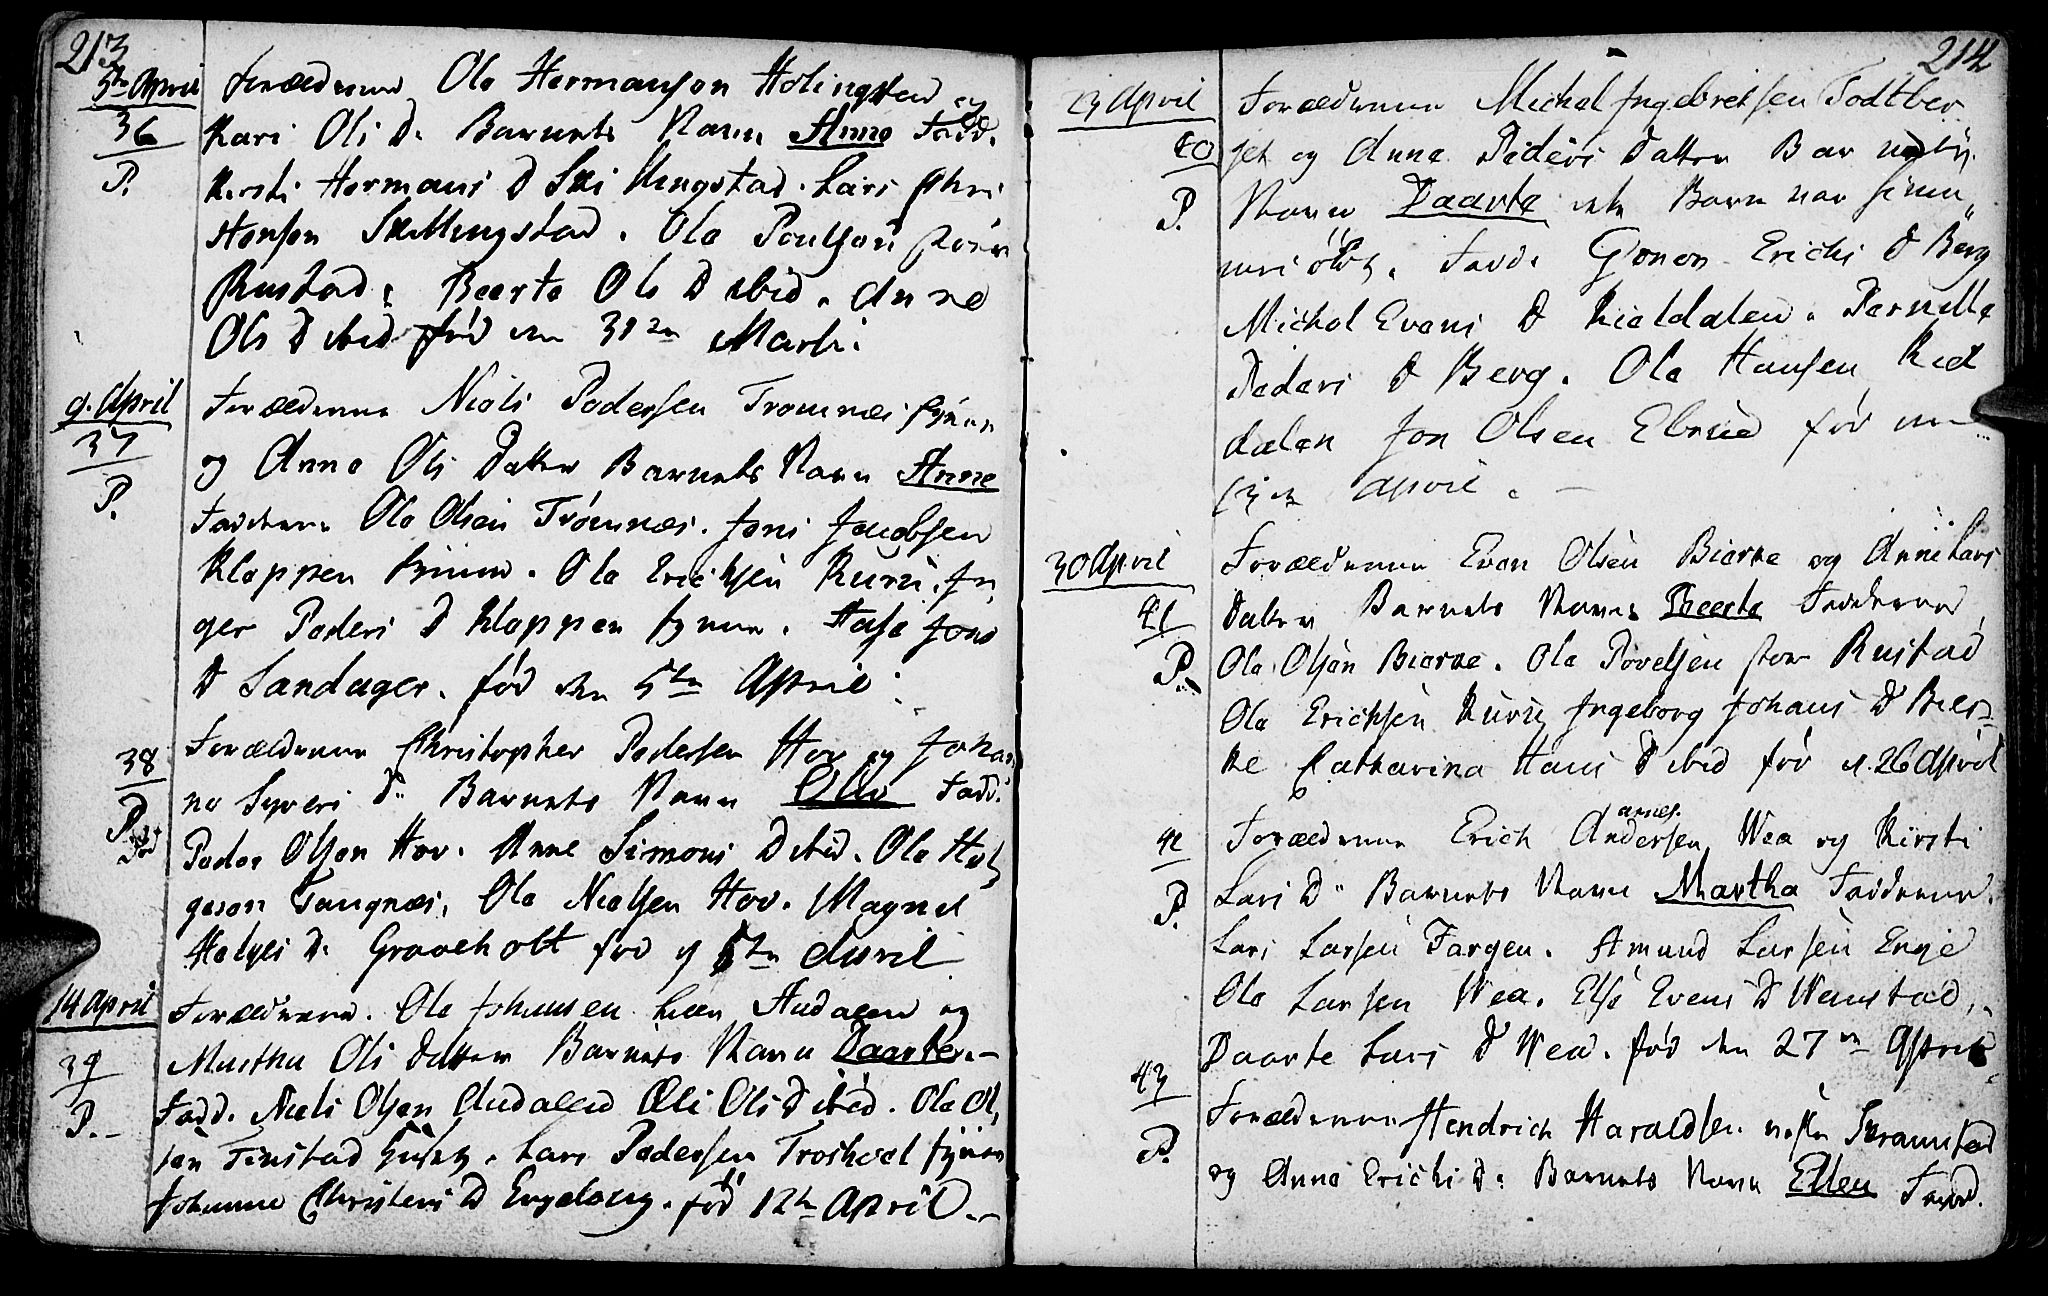 213
5te April
36
P.
Forældrene Ola Hermansen Holingstad og
Kari Ols D. Barnets Navn Anne Fadd.
Kersti Hermans D Lars Chri
stensen Skillingstad. Ola Poulsen
Rustad. Beerte Ols D ibid. Anne
Ols D ibid fød den 31te Marti.
9. April
37
P.
Forældrene Niels Pedersen Tromnæs
og Anne Ols Datter Barnets Navn Anne
Fadderne Ola Olsen Trømnæs. Jens Jacobsen
Kloppen. Ola Erichsen Kurü. In
ger Peders D Kloppen. Jens
D Sandager. fød den 5te April.
38
P.
Forældrene Christopher Pedersen Hov og Johan
ne Syvers D. Barnets Navn Fadd.
Peder Olsen Hov. Anne Simons D ibid. Ola Hel
geson Tangnæs, Ola Nielsen Hov. Magnel
Helges D. Graveholt fød 5te April
14 April
39
P.
Forældrene. Ola Johansen Audalen og
Martha Ols datter Barnets Navn Daarte
Fadd. Niels Olsen Audalen Ols D ibid. Ola Ol
sen Finstad. Lars Pedersen Troshoel
Johanne Christens D Engelaug. fød 12te April.
214
23 April
40
P.
Forældrene Michel Ingebretsen Todtber
get og Anne Peders Datter Barnets
Navn Daarte dette Barn var hjemme
døbt. Fadd. Gonor Erichs D Berg
Michol Evens D Kieldalen. Pernelle
Peders D Berg. Ola Hansen Kiel
dalen Jon Olsen Elsrud fød
April.
30 April
41
P.
Forældrene Even Olsen Bierke og Anne Lars
Datter Barnets Navn Beerte Fadderne
Ola Olsen Bierke. Ola Povelsen Rustad
Ola Erichsen Kurü Ingeborg Johans D Bier
ke Catharina Hans D ibid fød d. 26 April
42
P.
Forældrene Erich Andersen Wea og Kirsti
Lars D. Barnets Navn Martha Fadderne.
Lars Larsen Fargen. Amund Larsen Enge
Ola Larsen Wea. Else Evens D Wenstad.
Daarte Lars D Wea. fød den 27de April
43
P.
Forældrene Hendrich Haraldsen Skramstad
og Anne Erichs D. Barnets Navn Ellen Fadd.